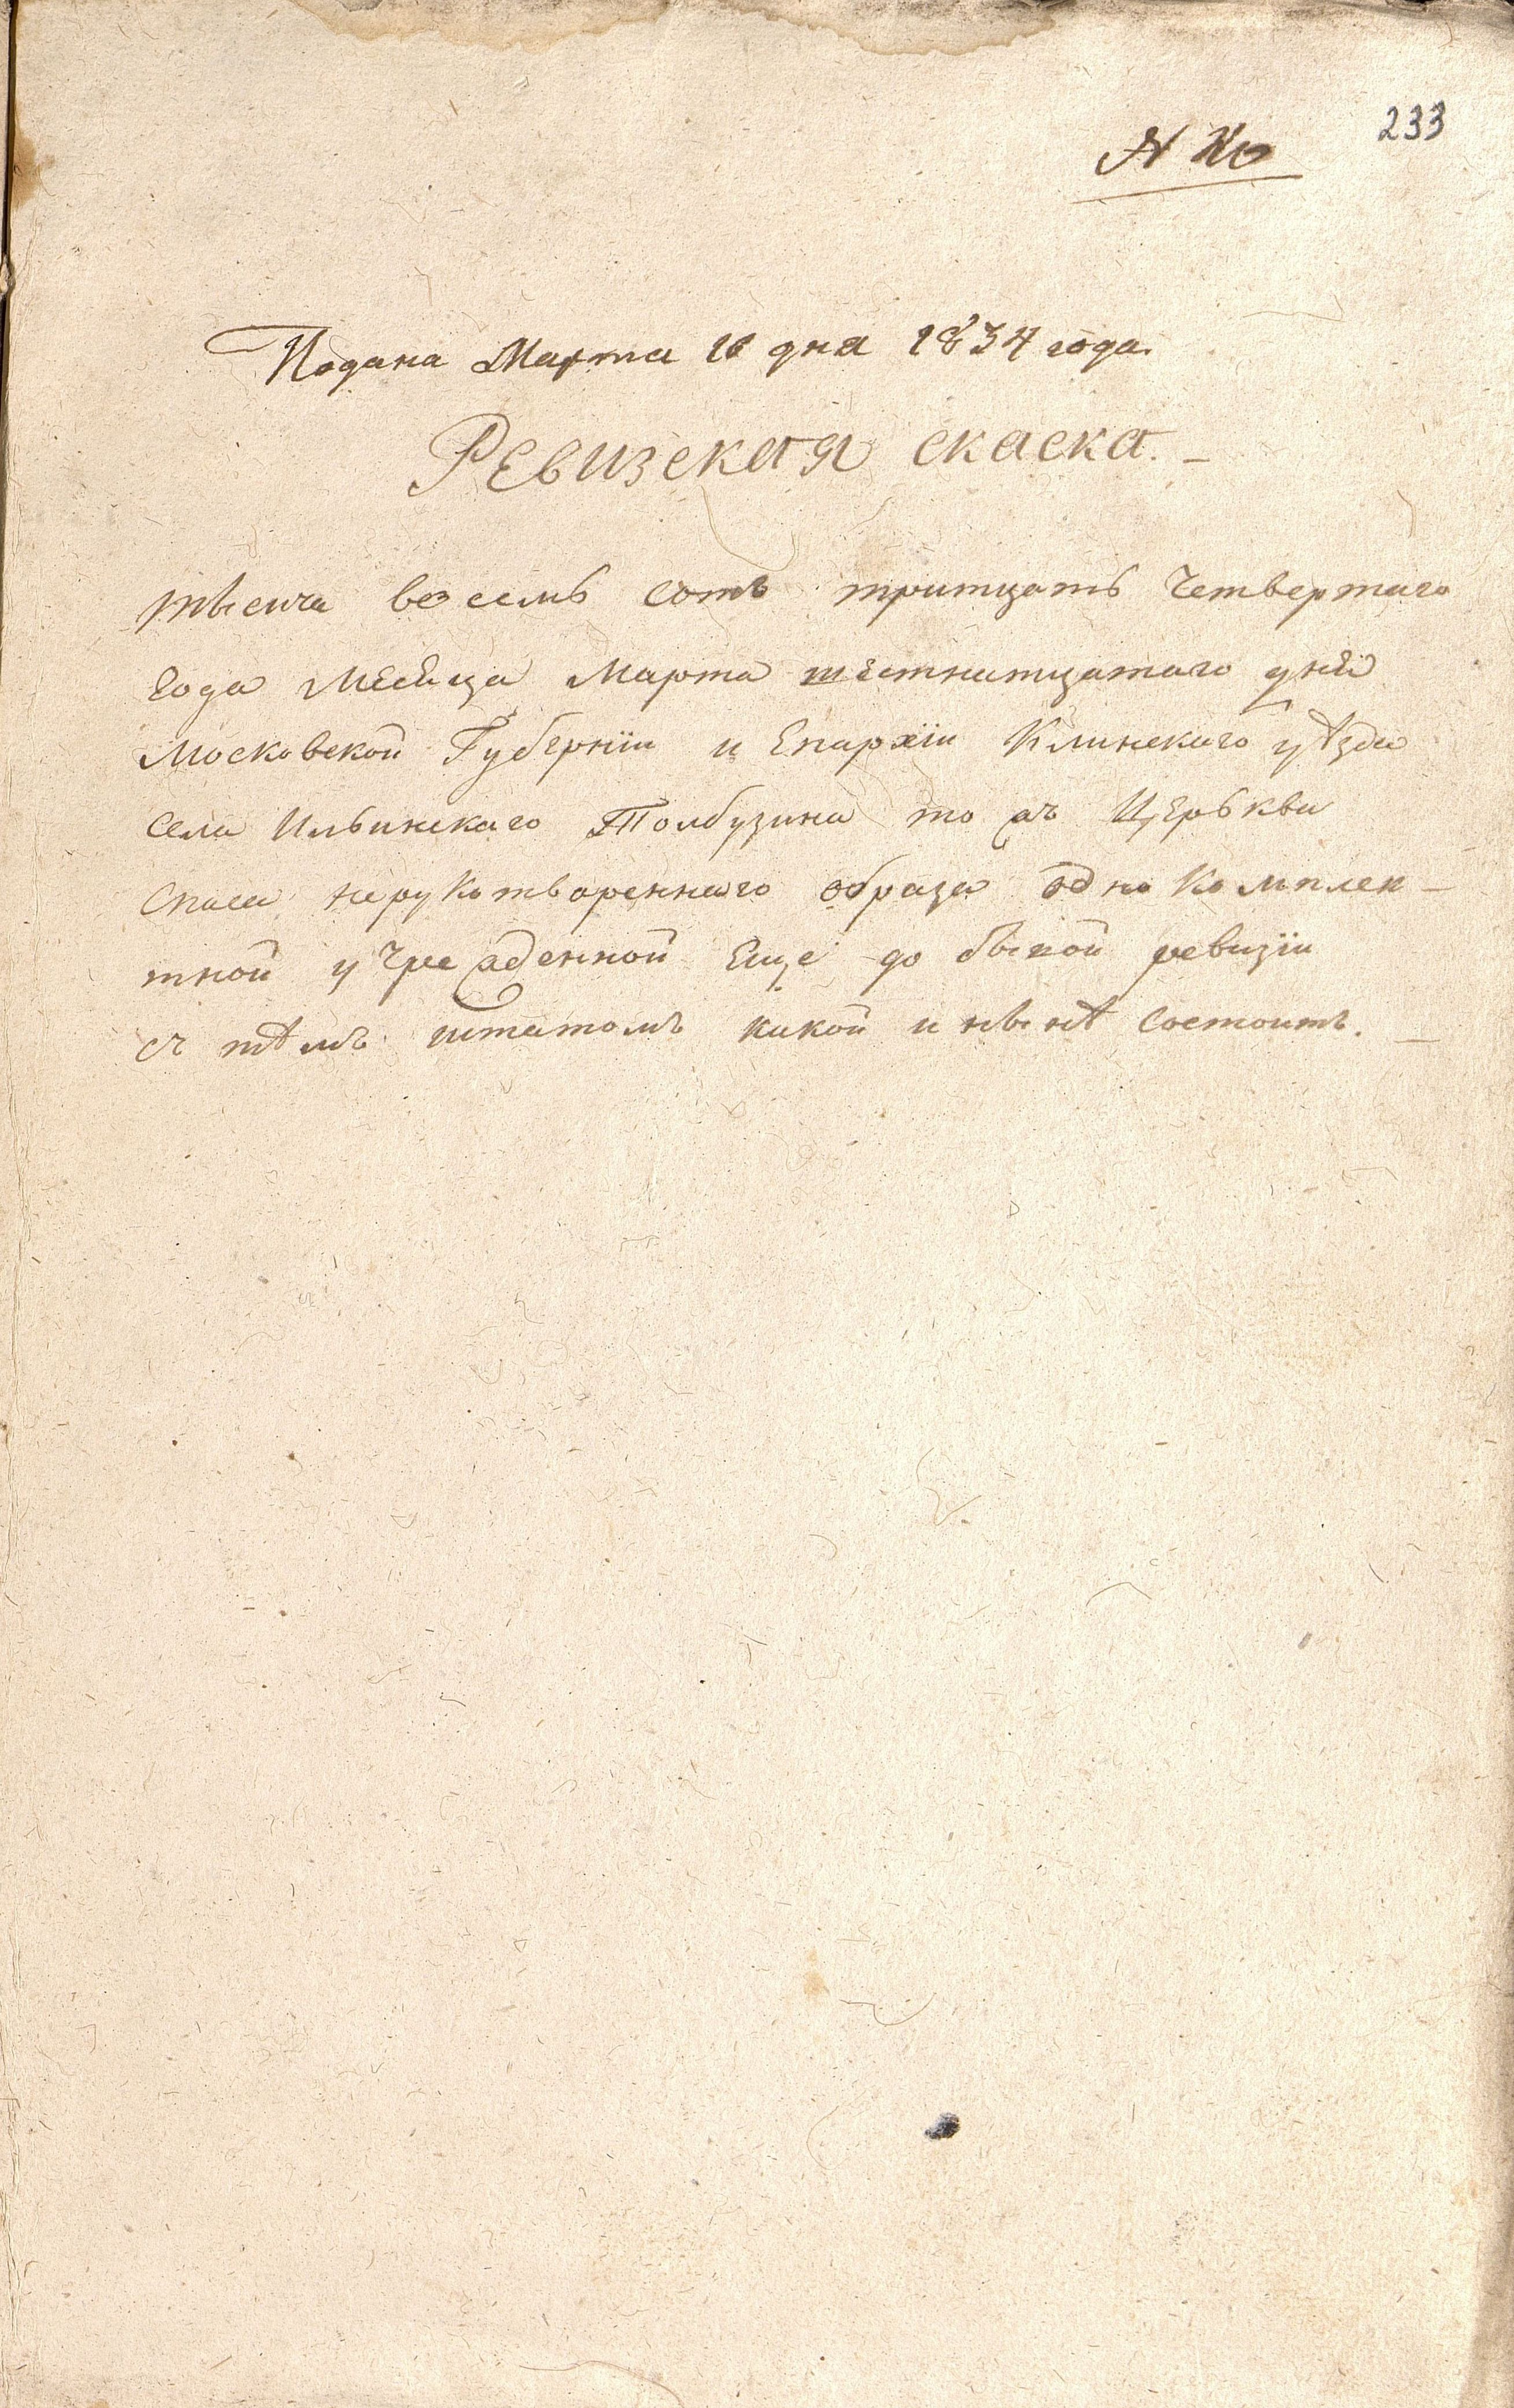 233
Подана Марта 16 дня 1834 года.
Ревизская скаска. —
тысяча восемь сотъ тритцать четвертаго
года месеца Марта шестнатцатаго дня
Московской Губернїи и Епархїи Клинскаго уѣзда
села Ильинскаго Толбузина то жъ Церькви
Спаса нерукотвореннаго образа однокомплек-
тной учрежденной еще до 6ы ной ревизїи
съ тѣмъ штатомъ какой и нынѣ состоитъ. —